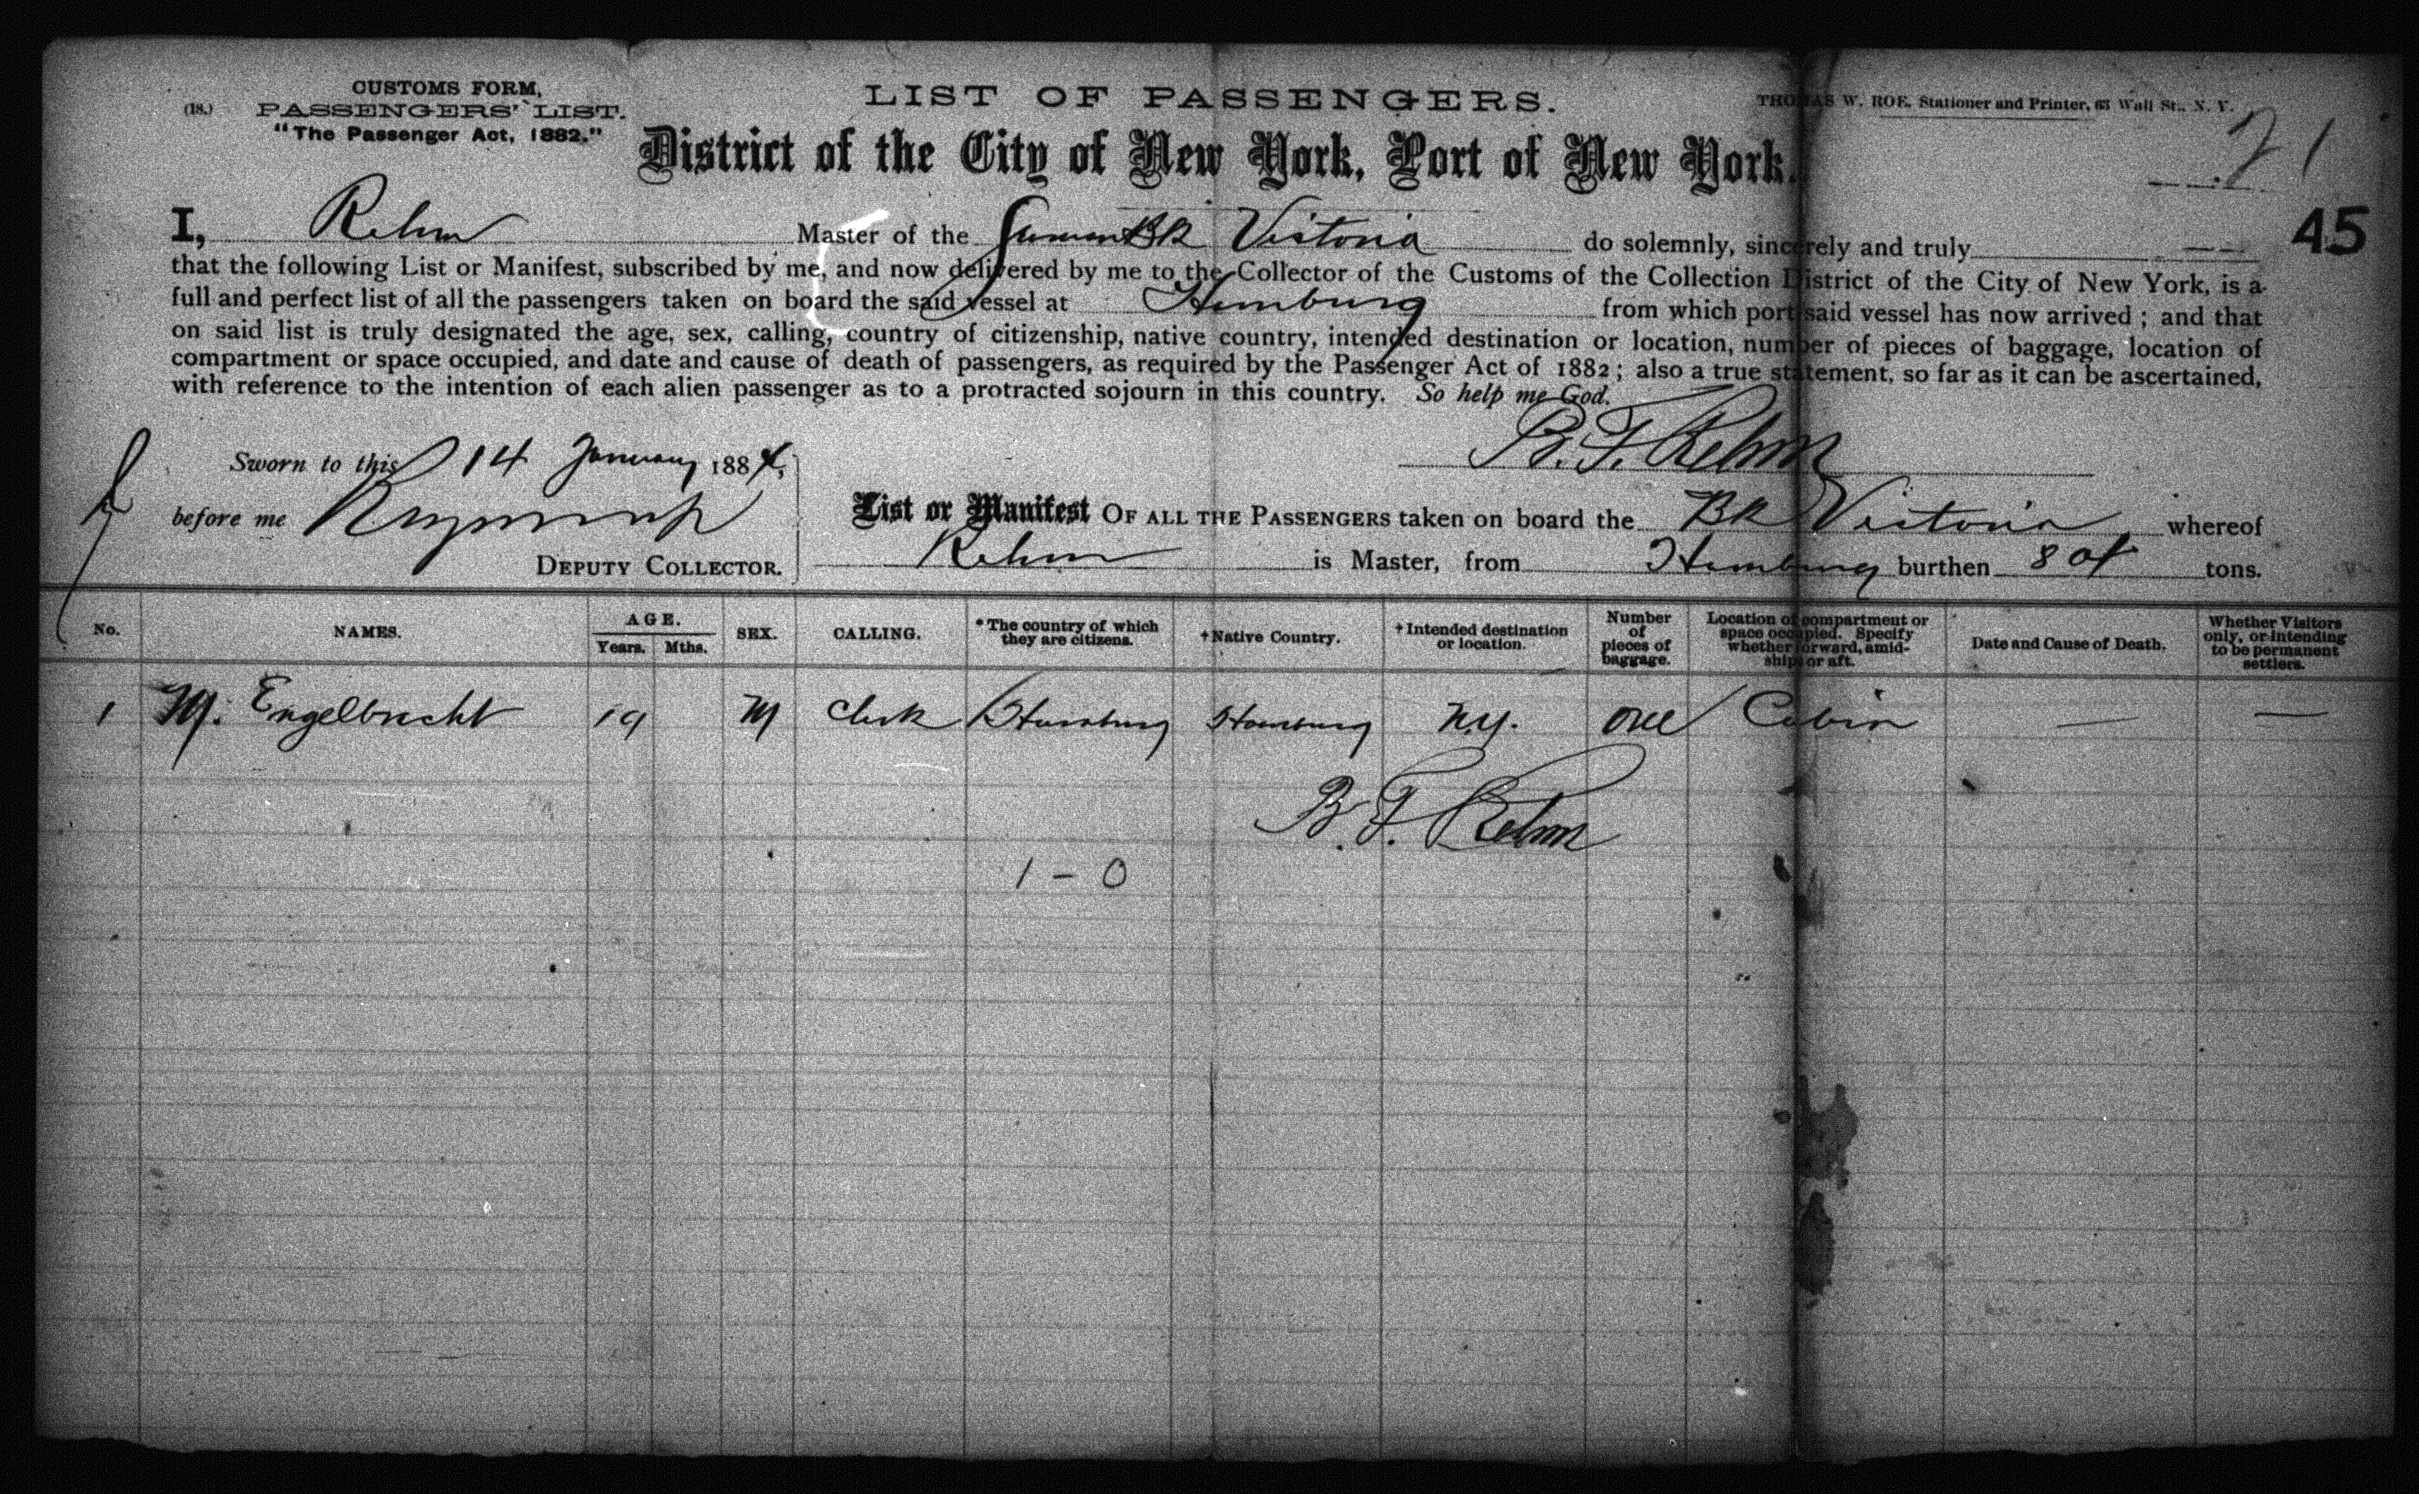 CUSTOMS FORM,
(18.) PASSENGERS' LIST.
"The Passenger Act, 1882."
LIST OF PASSENGERS.
THOMAS W. ROE, Stationer and Printer, 63 Wall St., N. Y.
21
District of the City of New York, Port of New York.
45
I, Rehm Master of the German Bk Victoria do solemnly, sincerely and truly
that the following List or Manifest, subscribed by me, and now delivered by me to the Collector of the Customs of the Collection District of the City of New York, is a
full and perfect list of all the passengers taken on board the said vessel at Hamburg from which port said vessel has now arrived; and that
on said list is truly designated the age, sex, calling, country of citizenship, native country, intended destination or location, number of pieces of baggage, location of
compartment or space occupied, and date and cause of death of passengers, as required by the Passenger Act of 1882; also a true statement, so far as it can be ascertained,
with reference to the intention of each alien passenger as to a protracted sojourn in this country. So help me God.
B. F. Rehm
Sworn to this 14 January 1884,
before me
DEPUTY COLLECTOR.
List or Manifest OF ALL THE PASSENGERS taken on board the Bk Victoria whereof
Rehm is Master, from Hamburg burthen 80 tons.
No. NAMES. AGE. Years. Mths. SEX. CALLING. *The country of which they are citizens. †Native Country. †Intended destination or location. Number of pieces of baggage. Location of compartment or space occupied. Specify whether forward, amidships or aft. Date and Cause of Death. Whether Visitors only, or intending to be permanent settlers.
1 M. Engelbrecht 19 M Clerk Hamburg Hamburg N.Y. one Cabin — —
B. F. Rehm
1 - 0